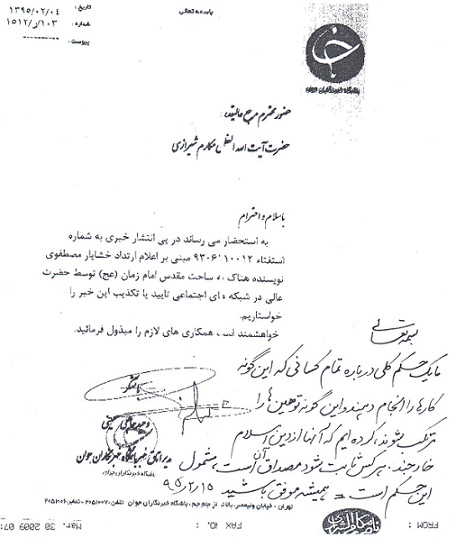 باسمه تعالی
تاریخ: ۱۳۹۵/۰۲/۰۴
شماره: ۱۰۳/ر/۱۵۱۲
پیوست: ----------
باشگاه خبرنگاران جوان
حضور محترم مرجع عالیقدر
حضرت آیت الله العظمی مکارم شیرازی
باسلام و احترام
به استحضار می رساند در پی انتشار خبری به شماره
استفتاء ۹۳۰۶۱۰۰۱۲ مبنی بر اعلام ارتداد خشایار مصطفوی
نویسنده هتاک به ساحت مقدس امام زمان (عج) توسط حضرت
عالی در شبکه های اجتماعی تایید یا تکذیب این خبر را
خواستاریم.
خواهشمند است همکاری های لازم را مبذول فرمائید.
باتشکر
مدیر اتاق خبر باشگاه خبرنگاران جوان
باشگاه خبرنگاران جوان
بسمه تعالی
ما یک حکم کلی درباره تمام کسانی که این گونه
کارها را انجام دهند و این گونه توهین ها را
مرتکب شوند، کرده ایم که آنها از دین اسلام
خارجند. هر کس ثابت شود مصداق آن است، مشمول
این حکم است = همیشه موفق باشید ۹۵/۲/۱۵
تهران - خیابان ولیعصر، بالاتر از جام جم، باشگاه خبرنگاران جوان
FROM : FAX NO. : Mar. 30 2009 07: